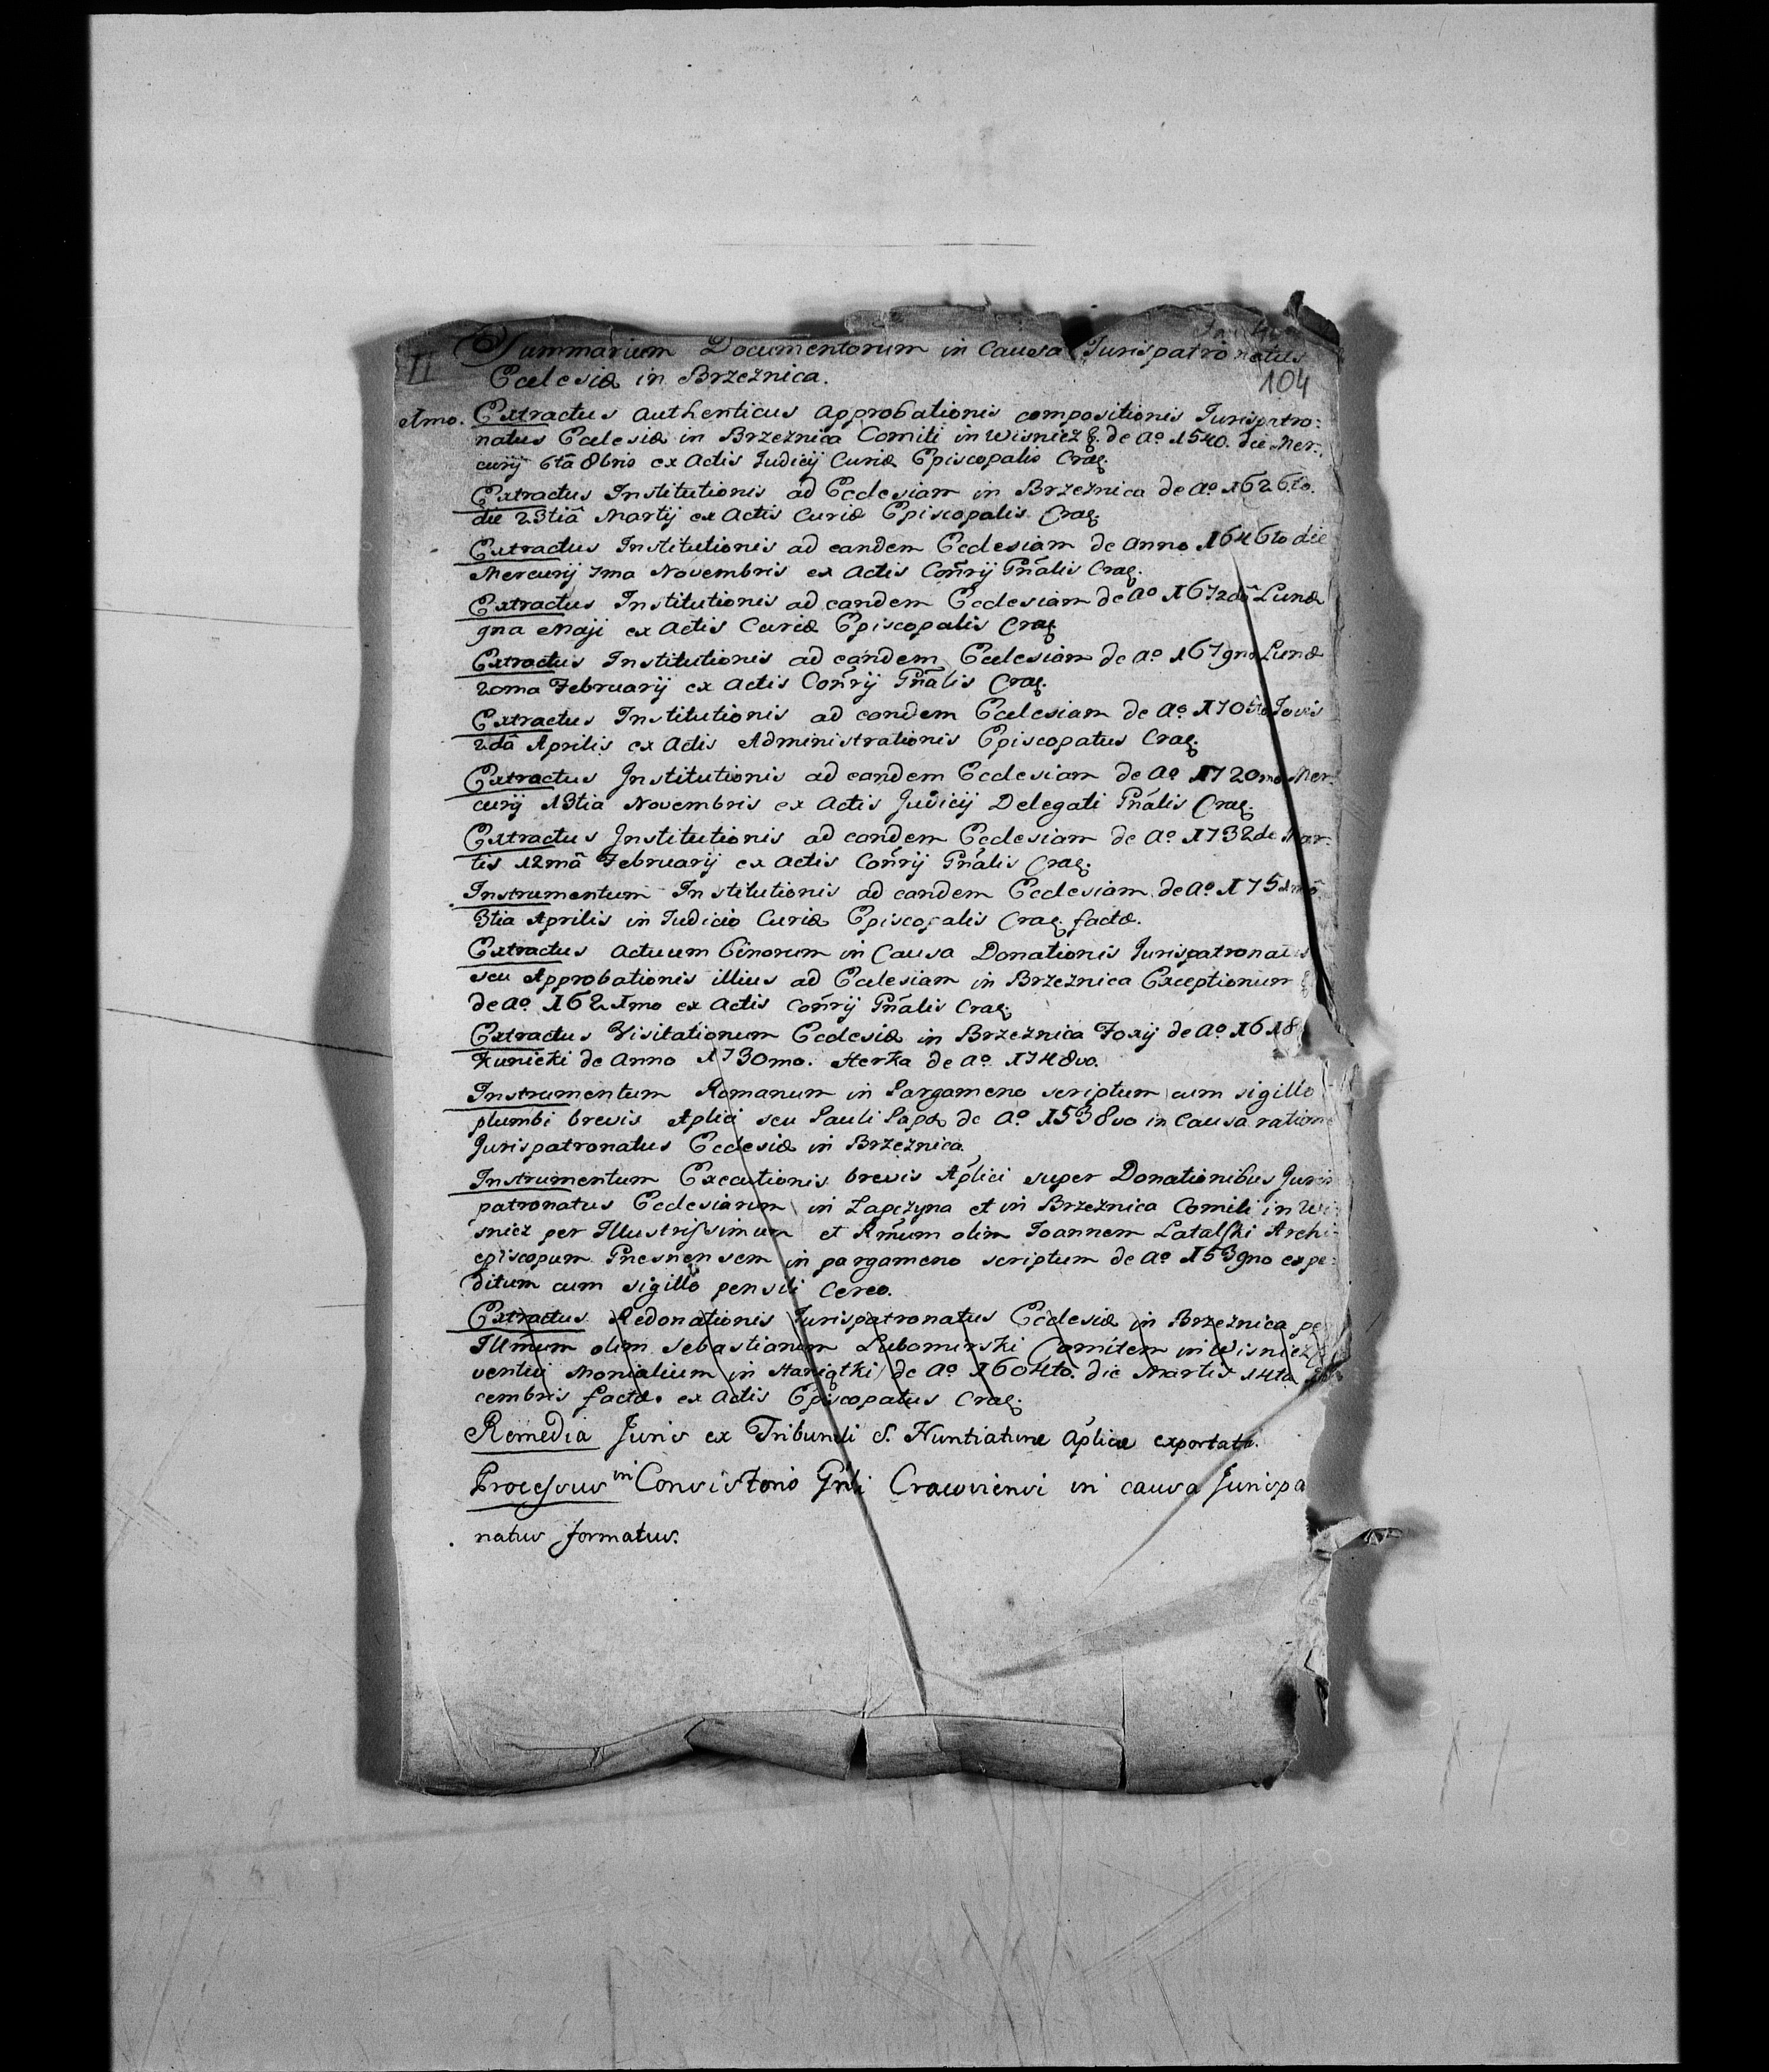 II
Summarium Documentorum in Causa Jurispatronatus
104
Ecclesiæ in Brzeznica.
1mo. Extractus authenticus approbationis compositionis Jurispatro:
natus Ecclesiæ in Brzeznica Comiti in Wisnicz &. de Aº 1540. die Mer:
curij 6tâ 8bris ex Actis Judicij Curiæ Episcopalis Crac.
Extractus Institutionis ad Ecclesiam in Brzeznica de Aº 1626to.
die 23tiâ Martij ex Actis Curiæ Episcopalis Crac.
Extractus Institutionis ad eandem Ecclesiam de Anno 1646to die
Mercurij 7ma Novembris ex Actis Cons̃rij Gñalis Crac.
Extractus Institutionis ad eandem Ecclesiam de Aº 1672dô Lunæ
9na Maji ex Actis Curiæ Episcopalis Crac
Extractus Institutionis ad eandem Ecclesiam de Aº 1679no Lunæ
20ma Februarij ex Actis Cons̃rij Gñalis Crac.
Extractus Institutionis ad eandem Ecclesiam de Aº Jovis
2dâ Aprilis ex Actis Administrationis Episcopatus Crac.
Extractus Institutionis ad eandem Ecclesiam de Aº 1720mo Mer:
curij 13tia Novembris ex Actis Judicij Delegati Gñalis Crac.
Extractus Institutionis ad eandem Ecclesiam de Aº 1732do Mar:
tis 12mâ Februarij ex Actis Cons̃rij Gñalis Crac.
Instrumentum Institutionis ad eandem Ecclesiam de Aº 1751mô
3tia Aprilis in Judicio Curiæ Episcopalis Crac. factæ.
Extractus actuum binorum in Causa Donationis Jurispatronatus
seu Approbationis illius ad Ecclesiam in Brzeznica Exceptionum &
de Aº 1621mo ex Actis Cons̃rij Gñalis Crac.
Extractus Visitationum Ecclesiæ in Brzeznica Foxij de Aº 1618
Kunicki de Anno 1730mo. Herka de Aº 1748vo.
Instrumentum Romanum in Pargameno scriptum cum sigillo
plumbi brevis Aplici seu Pauli Papæ de Aº 1538vo in Causa ratione
Jurispatronatus Ecclesiæ in Brzeznica.
Instrumentum Executionis brevis Aplici super Donationibus Juris
patronatus Ecclesiarum in Łapczyna et in Brzeznica Comiti in Wi
snicz per Illustrissimum et Rm̃um olim Joannem Latalski Archi-
episcopum Gnesnensem in pargameno scriptum de Aº 1539no expe:
ditum cum sigillo pensili Cereo.
Extractus Redonationis Jurispatronatus Ecclesiæ in Brzeznica pe
Illm̃um olim Sebastianum Lubomirski Comitem in Wisnicz
ventui Monialium in Staniątki de Aº 1604tô. die Martis 14ta
cembris factæ ex Actis Episcopatus Crac.
Remedia Juris ex Tribunali S. Nuntiaturæ Aplicæ exportata.
Processus in Consistorio Gñli Cracoviensi in causa Jurispa
natus formatus.